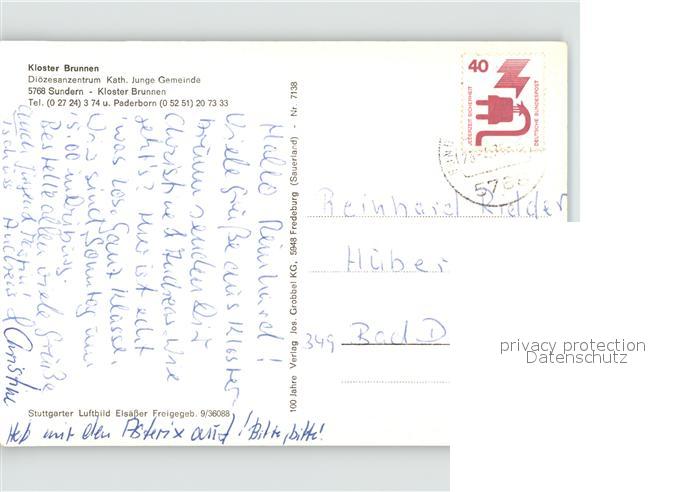 Kloster Brunnen
Diözesanzentrum Kath. Junge Gemeinde
5768 Sundern - Kloster Brunnen
Tel. (0 27 24) 3 74 u. Paderborn (0 52 51) 20 73 33
Hallo Reinhard!
Viele Grüße aus Kloster
Brunn senden Dir
Christne + Andreas. Wie
geht's? Hier ist echt
was los. Ganz Klasse.
Uns sind Sonntag um
15.00
Bestelle allen viele Grüße
auch
Tschüss Andreas & Christine
Heb mir den Asterix auf! Bitte, bitte!
Stuttgarter Luftbild Elsäßer Freigegeb. 9/36088
100 Jahre Verlag Jos. Grobbel KG, 5948 Fredeburg (Sauerland) - Nr. 7138
40
JEDERZEIT SICHERHEIT
DEUTSCHE BUNDESPOST
5768
Reinhard Ridder
Hüber
349 Bad D
privacy protection
Datenschutz